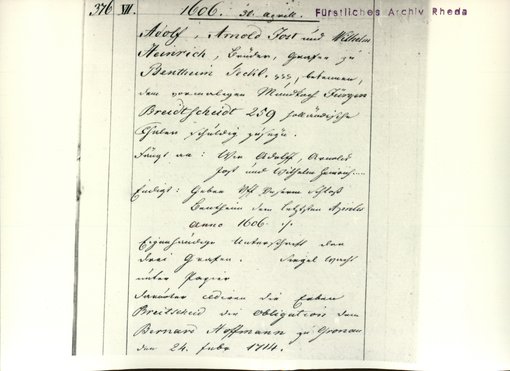 376 VII. 1606. 30. Aprill. Fürstliches Archiv Rheda
Adolf, Arnold Jost und Wilhelm
Heinrich, Brüder, Grafen zu
Bentheim Tecklb. bekennen,
dem vormaligen Mundkoch Jürgen
Breidtscheidt 259 holländische
Gulden schuldig zu sein.
Fängt an: Wir Adolff, Arnold
Jost und Wilhelm Henrich.....
Endigt: Geben Uff Unserm Schloß
Bentheim den letzten Aprilis
anno 1606.
Eigenhändige Unterschrift der
drei Grafen. Siegel
unter Papier
darunter cediren die Erben
Breitscheid die Obligation dem
Bernard Hoffmann zu Gronau
den 24. Febr. 1714.